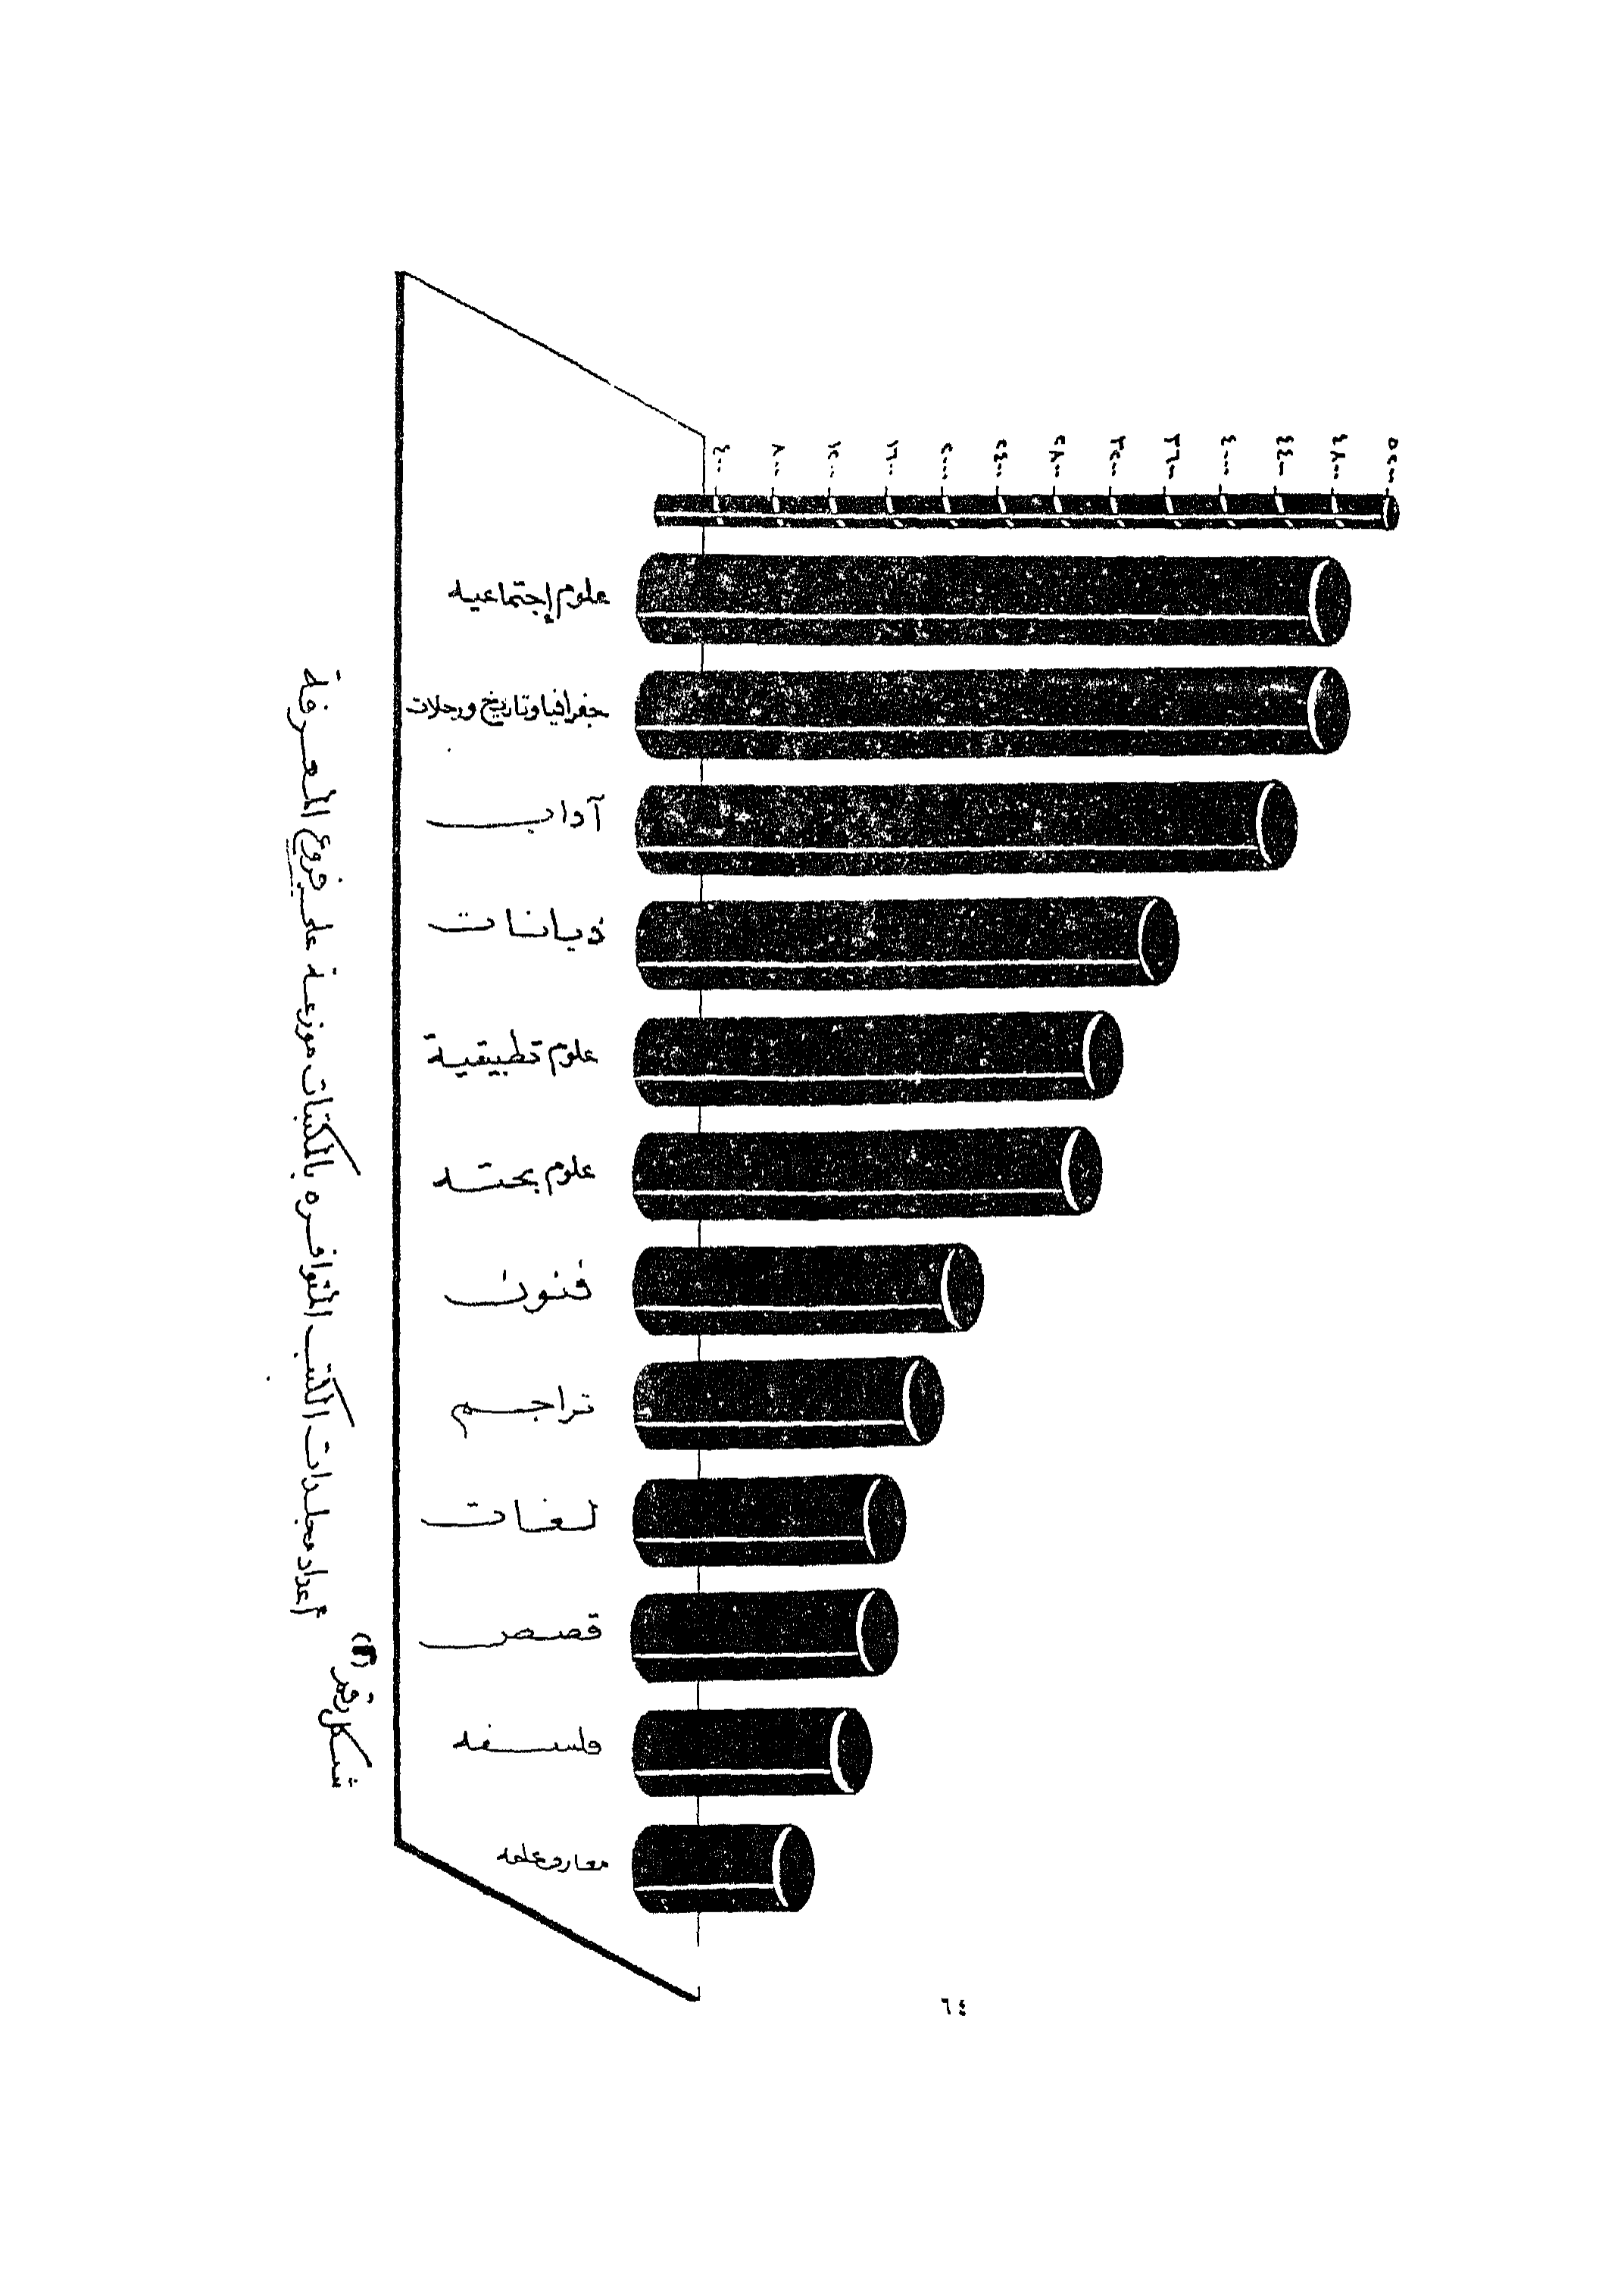 ٤٠٠٠
٨٠٠٠
١٢٠٠٠
١٦٠٠٠
٢٠٠٠٠
٢٤٠٠٠
٢٨٠٠٠
٣٢٠٠٠
٣٦٠٠٠
٤٠٠٠٠
٤٤٠٠٠
٤٨٠٠٠
٥٢٠٠٠
علوم إجتماعيه
جغرافيا وتاريخ ورحلات
آداب
ديانات
علوم تطبيقية
علوم بحته
فنون
تراجم
لغات
قصص
فلسفه
معارف عامه
شكل رقم
أعداد مجلدات الكتب المتوافره بالمكتبات موزعة على فروع المعرفة
٦٤